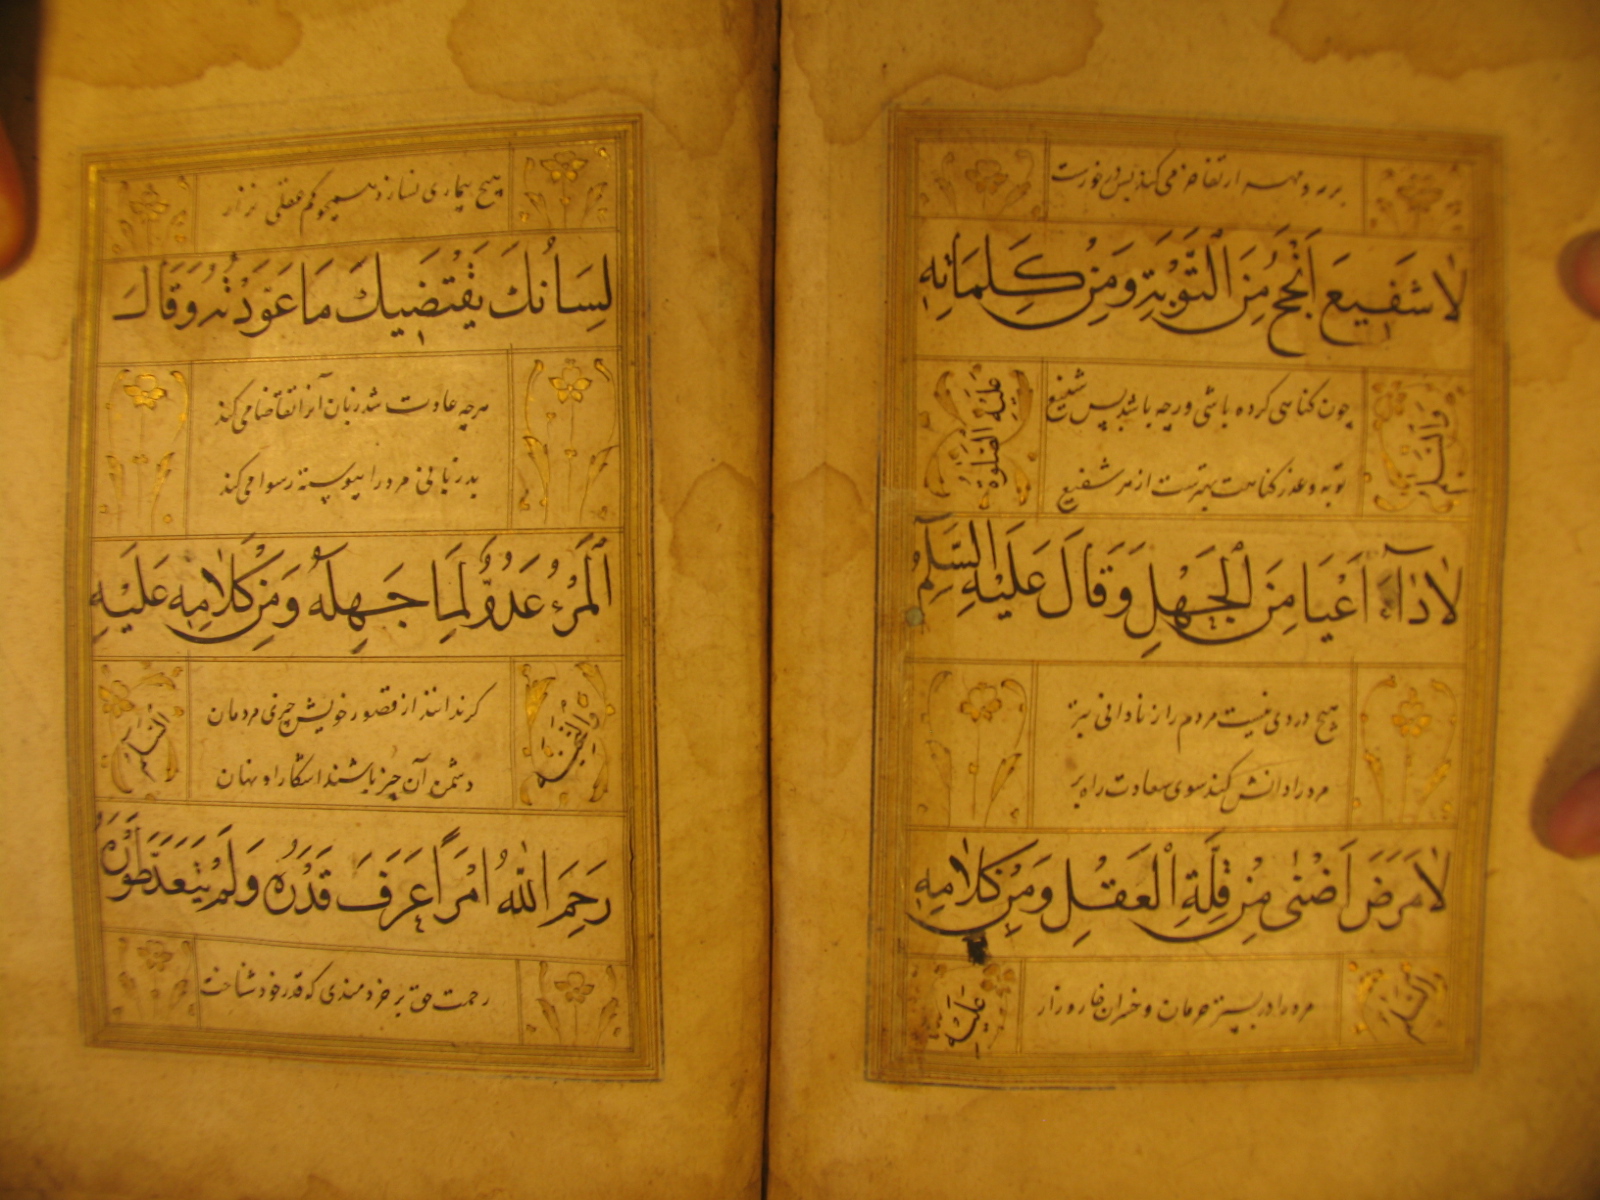 می‌کند پس در خورست
لَا شَفِيعَ اَنْجَحُ مِنَ التَّوْبَةِ وَمِنْ كَلِمَاتِهِ
چون کناهی کرده باشی ورچه باشد پس شفیع
وَالسَّلَامُ
عَلَيْهِ الصَّلٰوةُ
توبه و عذر کناهت بهترست از هر شفیع
لَا دَاۤءَ اَعْيَا مِنَ الْجَهْلِ وَقَالَ عَلَيْهِ السَّلَامُ
هیچ دردی نیست مردم را ز نادانی بتر
مرد را دانش کند سوی سعادت راه بر
لَا مَرَضَ اَضْنٰى مِنْ قِلَّةِ الْعَقْلِ وَمِنْ كَلَامِهِ
السَّلَامُ
مرد را در بستر حرمان و خسران خار و زار
عَلَيْهِ
هیچ بیماری نسازد همچو کم عقلی نزار
لِسَانُكَ يَقْتَضِيكَ مَا عَوَّدْتَهُ وَقَالَ
هرچه عادت شد زبان آنرا تقاضا می کند
بد زبانی مرد را پیوسته رسوا می کند
اَلْمَرْءُ عَدُوٌّ لِمَا جَهِلَهُ وَمِنْ كَلَامِهِ عَلَيْهِ
کر ندانند از قصور خویش چیزی مردمان
وَالتَّحِيَّةُ
دشمن آن چیز باشند اشکارا و نهان
رَحِمَ اللّٰهُ امْرَأً عَرَفَ قَدْرَهُ وَلَمْ يَتَعَدَّ طَوْرَهُ
رحمت حق بر خردمندی که قدر خود شناخت